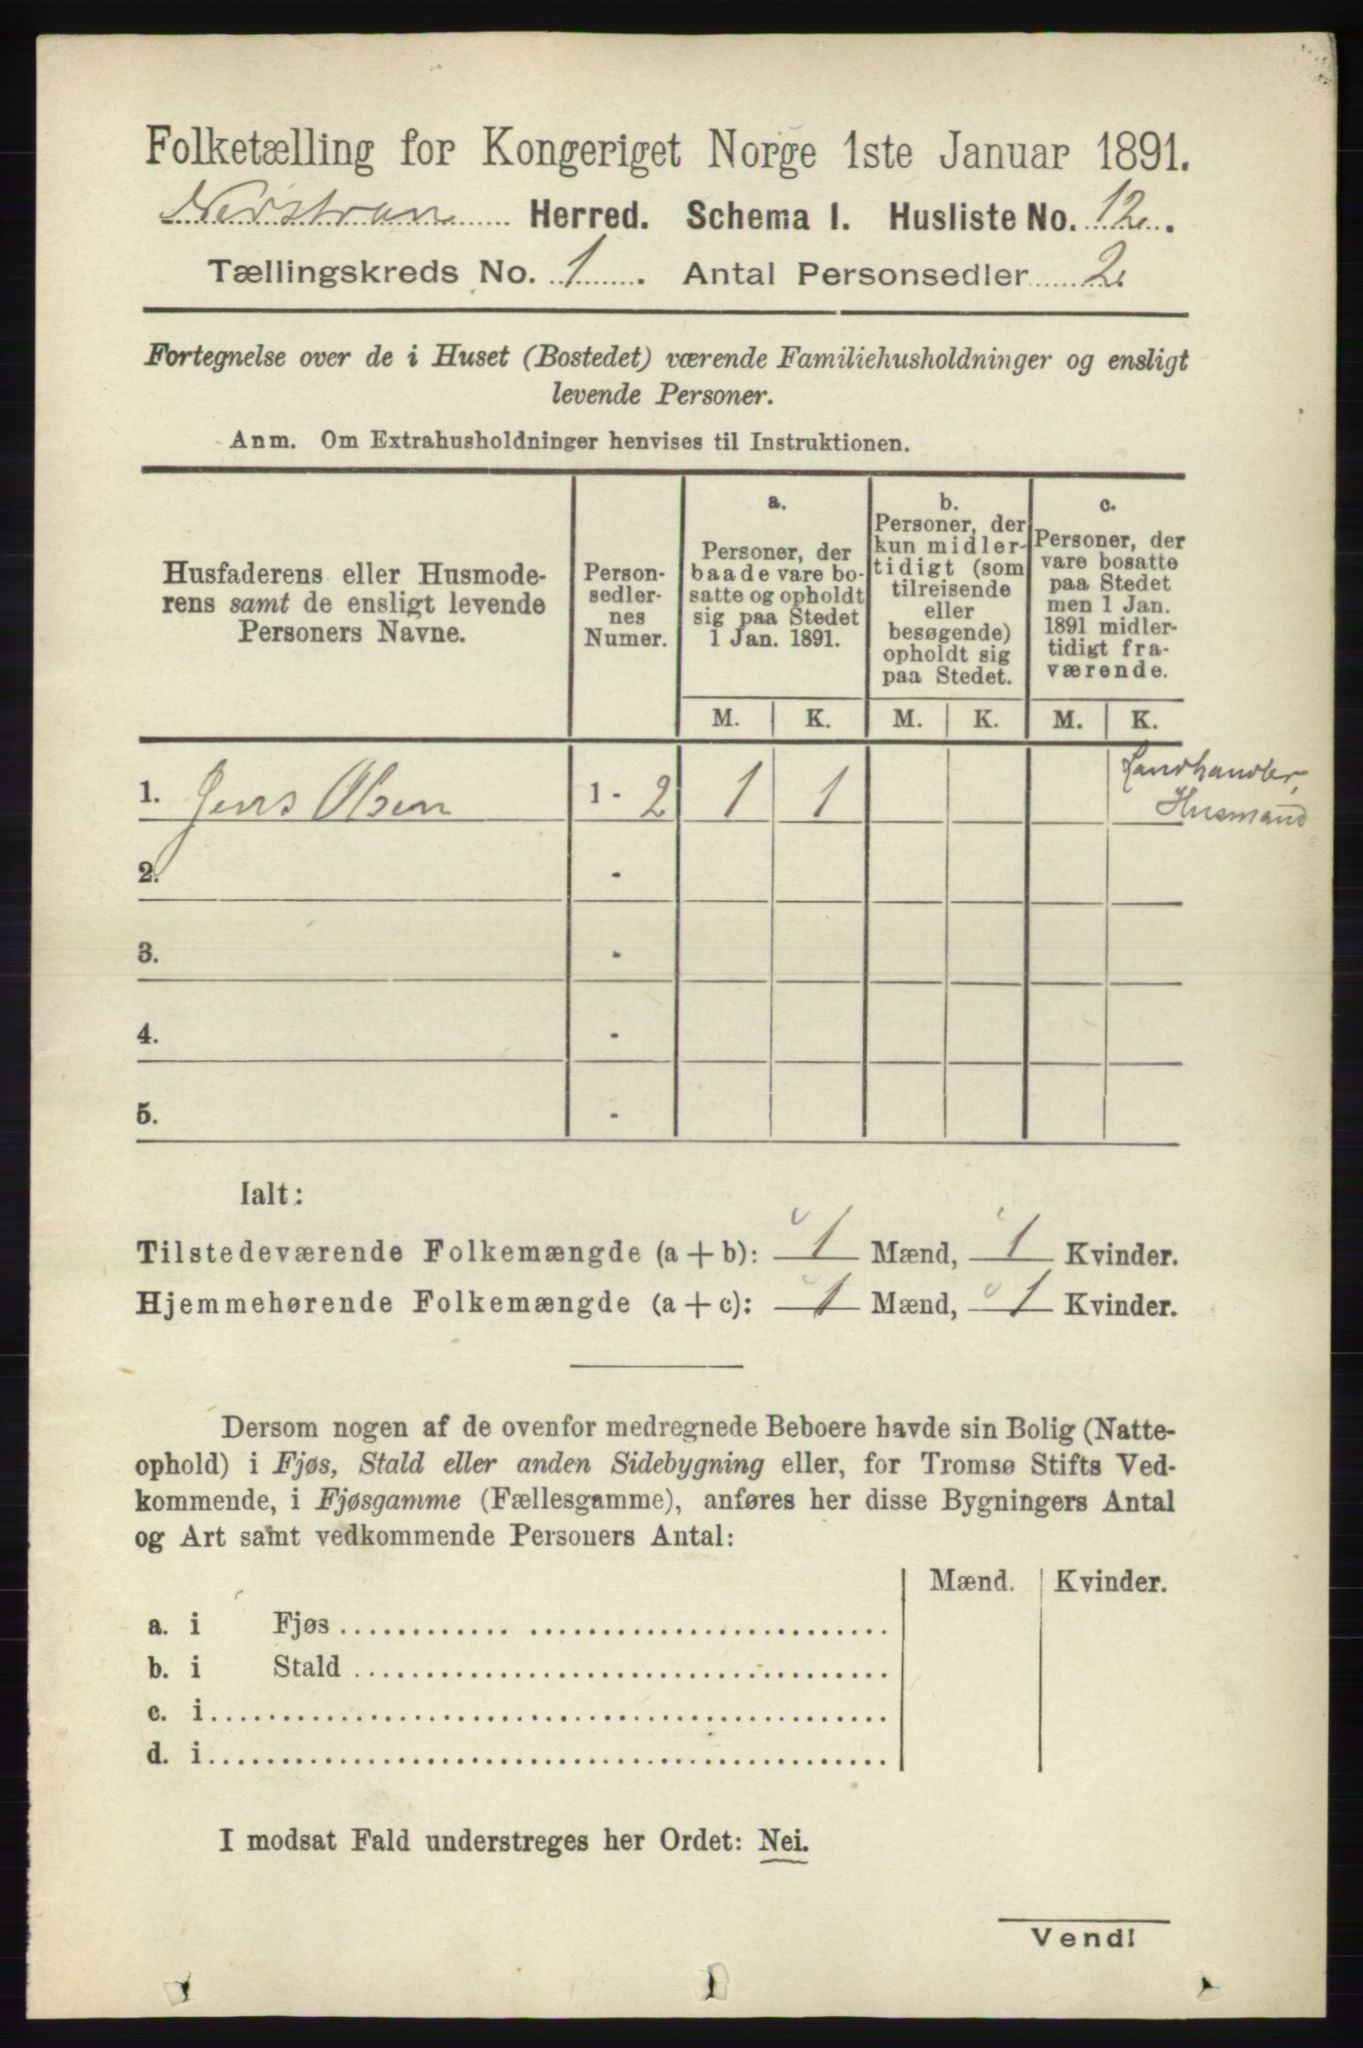 Folketælling for Kongeriget Norge 1ste Januar 1891.
Nerstrand Herred. Schema I. Husliste No. 12.
Tællingskreds No. 1. Antal Personsedler 2.
Fortegnelse over de i Huset (Bostedet) værende Familiehusholdninger og ensligt
levende Personer.
Anm. Om Extrahusholdninger henvises til Instruktionen.
Husfaderens eller Husmode-
rens samt de ensligt levende
Personers Navne.
Person-
sedler-
nes
Numer.
a.
Personer, der
baade vare bo-
satte og opholdt
sig paa Stedet
1 Jan. 1891.
b.
Personer, der
kun midler-
tidigt (som
tilreisende
eller
besøgende)
opholdt sig
paa Stedet.
c.
Personer, der
vare bosatte
paa Stedet
men 1 Jan.
1891 midler-
tidigt fra-
værende.
M. K. M. K. M. K.
1. Jens Olsen 1 - 2 1 1 Landhandler,
Husmand
2. -
3. -
4. -
5. -
Ialt:
Tilstedeværende Folkemængde (a + b): 1 Mænd, 1 Kvinder.
Hjemmehørende Folkemængde (a + c): 1 Mænd, 1 Kvinder.
Dersom nogen af de ovenfor medregnede Beboere havde sin Bolig (Natte-
ophold) i Fjøs, Stald eller anden Sidebygning eller, for Tromsø Stifts Ved-
kommende, i Fjøsgamme (Fællesgamme), anføres her disse Bygningers Antal
og Art samt vedkommende Personers Antal:
Mænd. Kvinder.
a. i Fjøs
b. i Stald
c. i
d. i
I modsat Fald understreges her Ordet: Nei.
Vend!